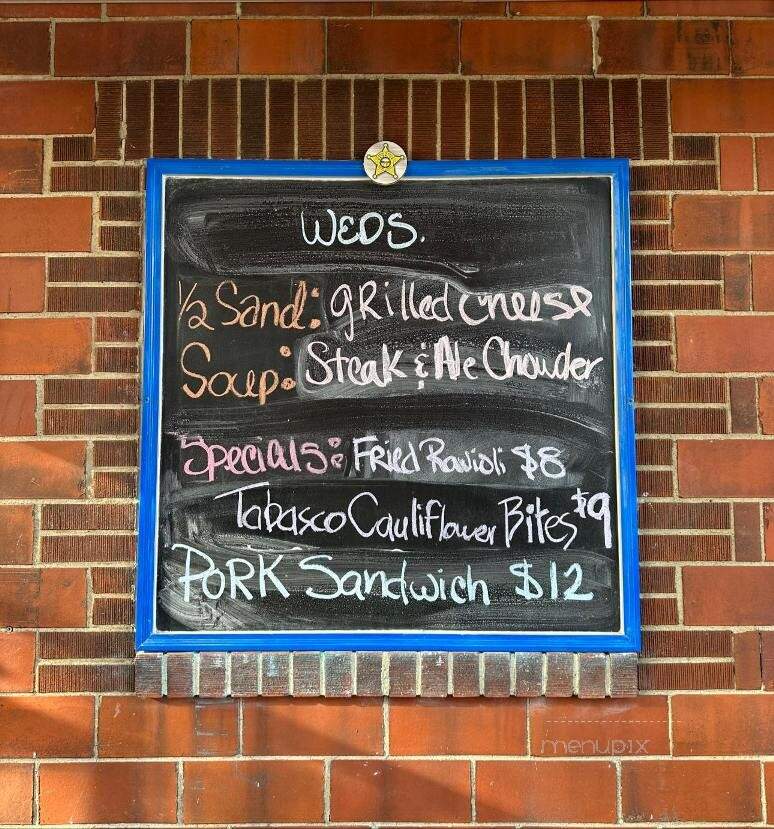 WEDS.
½ Sand: GRilled cheese
Soup: Steak & Ale Chowder
Specials: FRied Ravioli $8
Tabasco Cauliflower Bites $9
PORK Sandwich $12
menupix